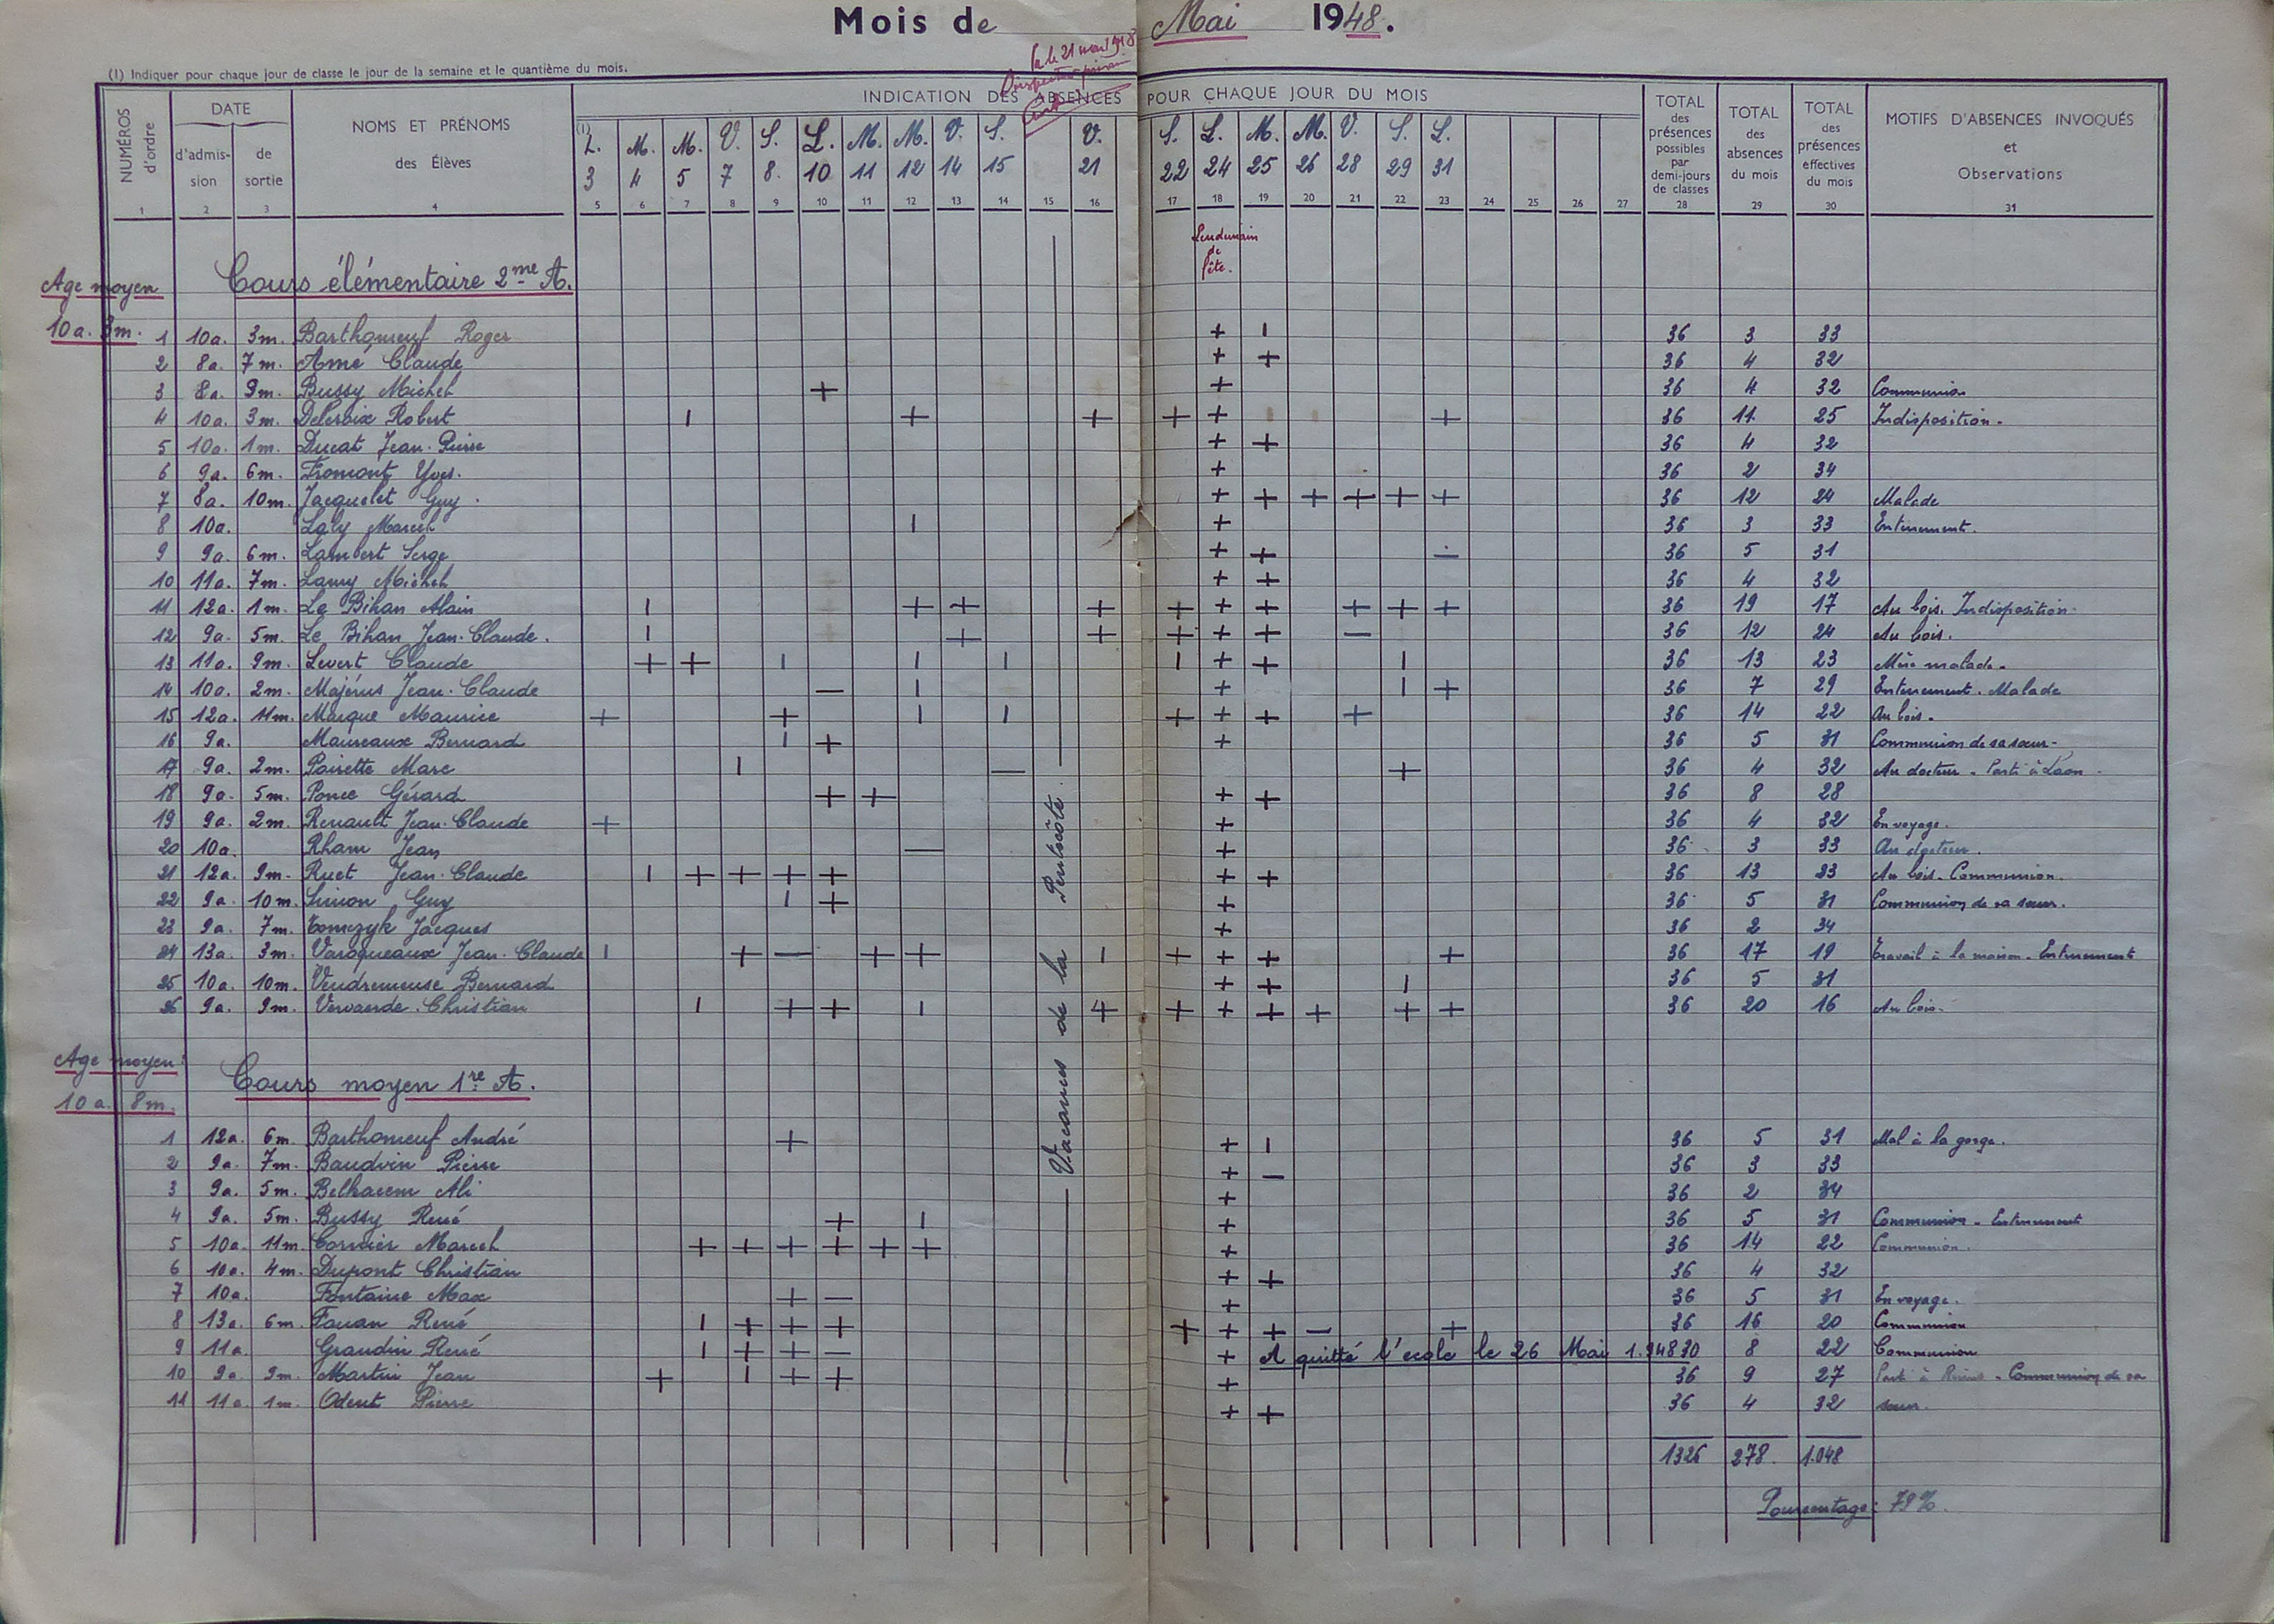 Mois de Mai 1948.
(1) Indiquer pour chaque jour de classe le jour de la semaine et le quantième du mois.
le 21 mai 1948
NUMÉROS d'ordre
DATE
d'admission
de sortie
NOMS ET PRÉNOMS
des Élèves
INDICATION DES ABSENCES POUR CHAQUE JOUR DU MOIS
TOTAL des présences possibles par demi-jours de classes
TOTAL des absences du mois
TOTAL des présences effectives du mois
MOTIFS D'ABSENCES INVOQUÉS
et
Observations
(1) L. M. M. V. S. L. M. M. V. S. V. S. L. M. M. V. S. L.
3 4 5 7 8. 10 11 12 14 15 21 22 24 25 26 28 29 31
1 2 3 4 5 6 7 8 9 10 11 12 13 14 15 16 17 18 19 20 21 22 23 24 25 26 27 28 29 30 31
Lendemain
de
fête.
Age moyen
10a. 3m.
Cours élémentaire 2me A.
1 10a. 3m. Barthomeuf Roger + | 36 3 33
2 8a. 7m. Amé Claude + + 36 4 32
3 8a. 9m. Bussy Michel + + 36 4 32 Communion
4 10a. 3m. Delcroix Robert | + + + + + 36 11. 25 Indisposition.
5 10a. 1m. Ducat Jean-Pierre + + 36 4 32
6 9a. 6m. Fromont Yves. + 36 2 34
7 8a. 10m. Jacquelet Guy. + + + + + + 36 12 24 Malade
8 10a. Laly Marcel | + 36 3 33 Enterrement.
9 9a. 6m. Lambert Serge + + — 36 5 31
10 11a. 7m. Lamy Michel + + 36 4 32
11 12a. 1m. Le Bihan Alain | + + + + + + + + + 36 19 17 Au bois. Indisposition.
12 9a. 5m. Le Bihan Jean-Claude. | + + + + + — 36 12 24 Au bois.
13 11a. 9m. Levert Claude + + | | | | + + | 36 13 23 Mère malade.
14 10a. 2m. Majérus Jean-Claude — | + | + 36 7 29 Enterrement. Malade
15 12a. 11m. Marque Maurice + + | | + + + + 36 14 22 Au bois.
16 9a. Maureaux Bernard | + + 36 5 31 Communion de sa sœur.
17 9a. 2m. Poirette Marc | — + 36 4 32 Au docteur. Parti à Laon.
18 9a. 5m. Ponce Gérard + + + + 36 8 28
19 9a. 2m. Renault Jean-Claude + + 36 4 32 En voyage.
20 10a. Rham Jean — + 36 3 33 Au docteur.
21 12a. 9m. Ruet Jean-Claude | + + + + + + 36 13 23 Au bois. Communion.
22 9a. 10m. Simon Guy | + + 36 5 31 Communion de sa sœur.
23 9a. 7m. Tomczyk Jacques + 36 2 34
24 13a. 3m. Varoqueaux Jean-Claude | + — + + | + + + + 36 17 19 Travail à la maison. Enterrement
25 10a. 10m. Vendremeuse Bernard + + | 36 5 31
26 9a. 9m. Vervaerde Christian | + + | + + + + + + + 36 20 16 Au bois.
Vacances de la Pentecôte.
Age moyen:
10 a. 8m.
Cours moyen 1re A.
1 12a. 6m. Barthomeuf André + + | 36 5 31 Mal à la gorge.
2 9a. 7m. Baudvin Pierre + — 36 3 33
3 9a. 5m. Belhacem Ali + 36 2 34
4 9a. 5m. Bussy René + | + 36 5 31 Communion. Enterrement
5 10a. 11m. Cornier Marcel + + + + + + + 36 14 22 Communion.
6 10a. 4m. Dupont Christian + + 36 4 32
7 10a. Fontaine Max + — + 36 5 31 En voyage.
8 13a. 6m. Fouan René | + + + + + + — + 36 16 20 Communion
9 11a. Graudin René | + + — + A quitté l'école le 26 Mai 1.948 30 8 22 Communion
10 9a. 9m. Martin Jean + | + + + 36 9 27 Parti à Reims. Communion de sa
11 11a. 1m. Odent Pierre + + 36 4 32 sœur.
1326 278. 1.048
Pourcentage: 79%.